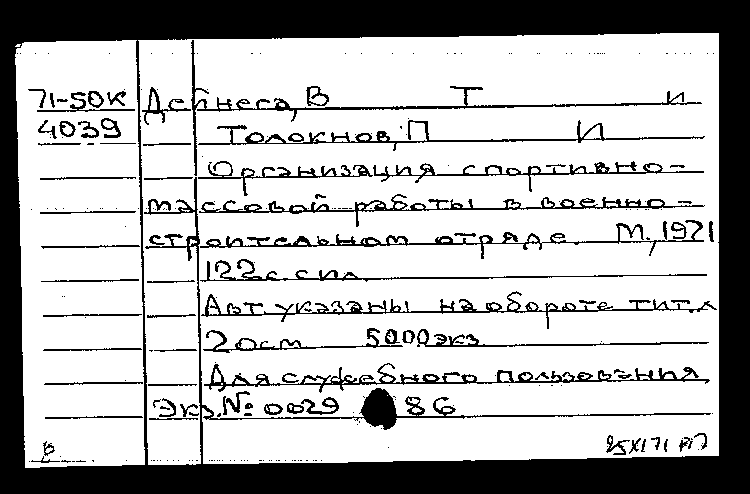 71-50К Дейнега, В Т и
4039 Толокнов, П И
Организация спортивно-
массовой работы в военно-
строительном отряде. М., 1971
122 с. с ил.
Авт. указаны на обороте тит. л
20 см 5000 экз.
Для служебного пользования.
Экз. № 0029 86
в 25XI 71